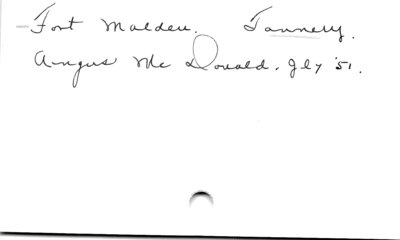 Fort Malden. Tannery.
Angus Mc Donald. Jly '51.